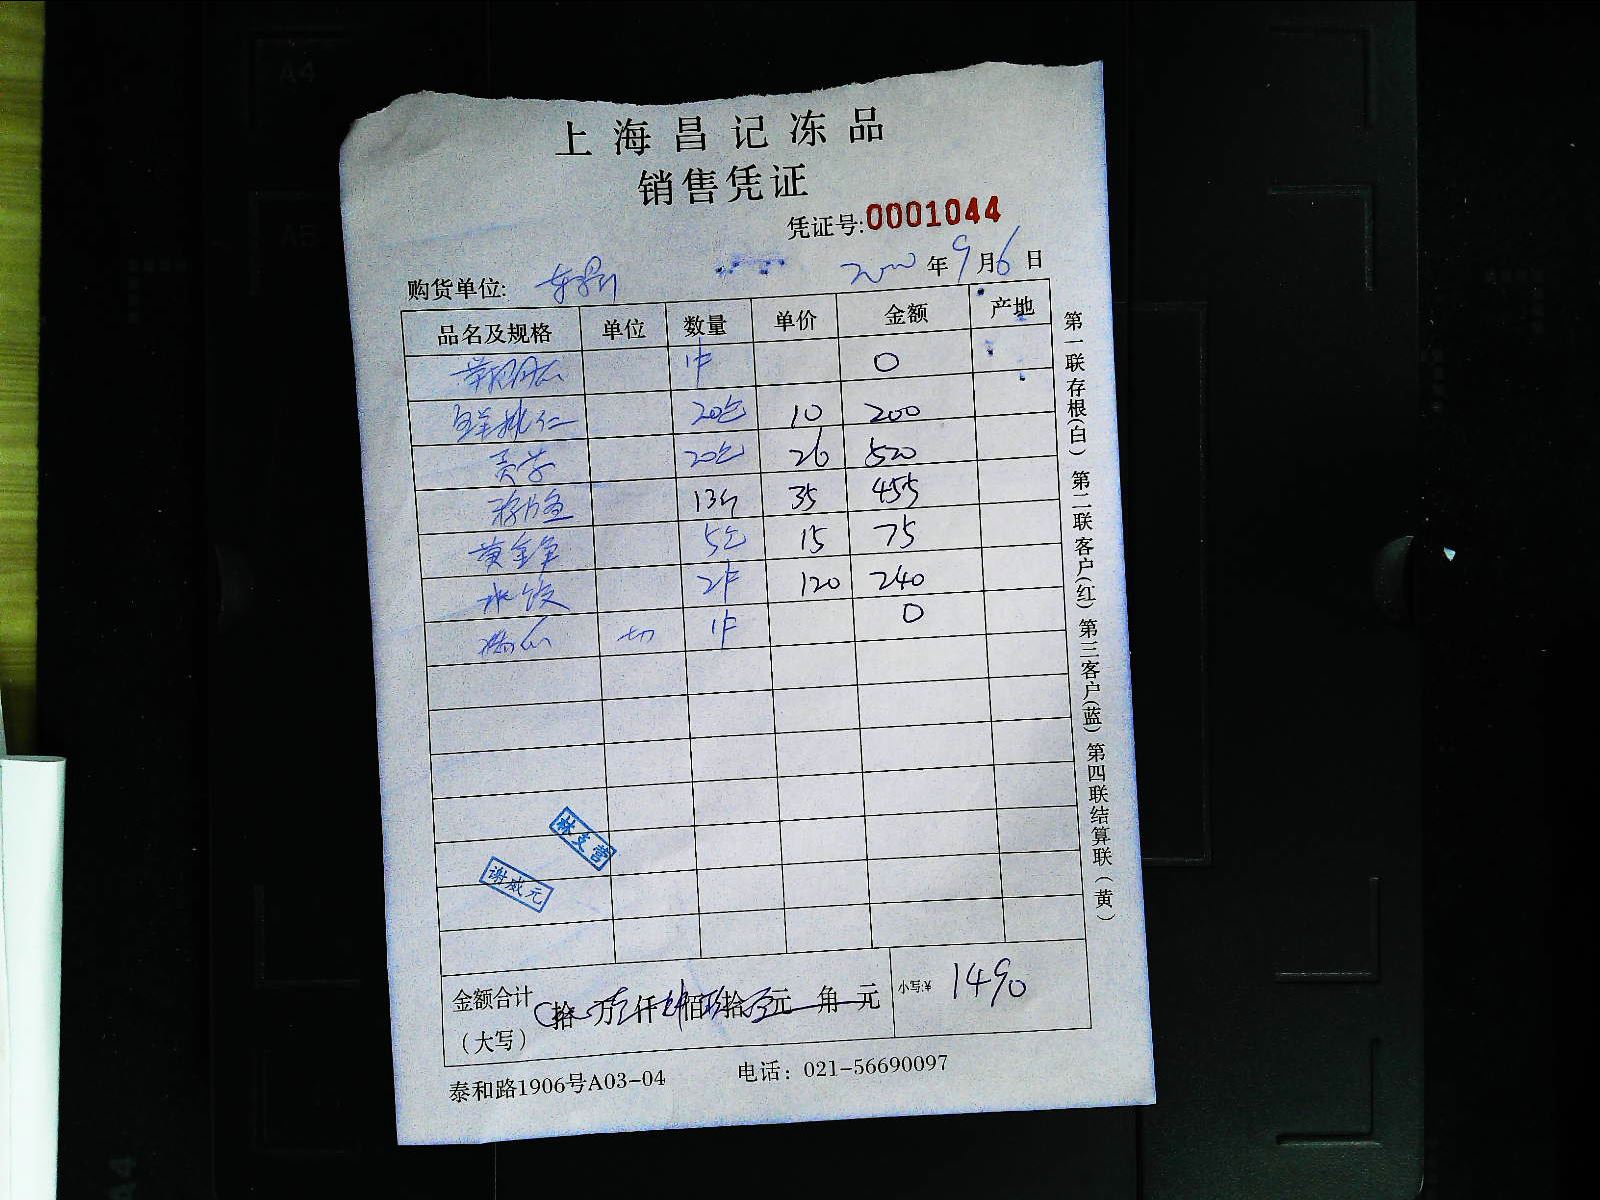 上海昌记冻品
销售凭证
凭证号:0001044
购货单位: 年9月6日
品名及规格 单位 数量 单价 金额 产地
1件 0
20包 10 200
贡 20包 26 520
13斤 35 455
黄金 5包 15 75
水饺 2件 120 240
切 1件 0
林支营
谢威元
金额合计 拾 万 仟 佰 拾 元 角 元 小写:¥ 1490
(大写)
泰和路1906号A03-04 电话: 021-56690097
第一联存根(白) 第二联客户(红) 第三客户(蓝) 第四联结算联(黄)
A4
A5
A4